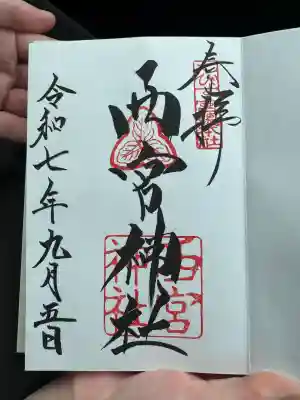 奉拝
西宮神社
西宮
神社
令和七年九月五日